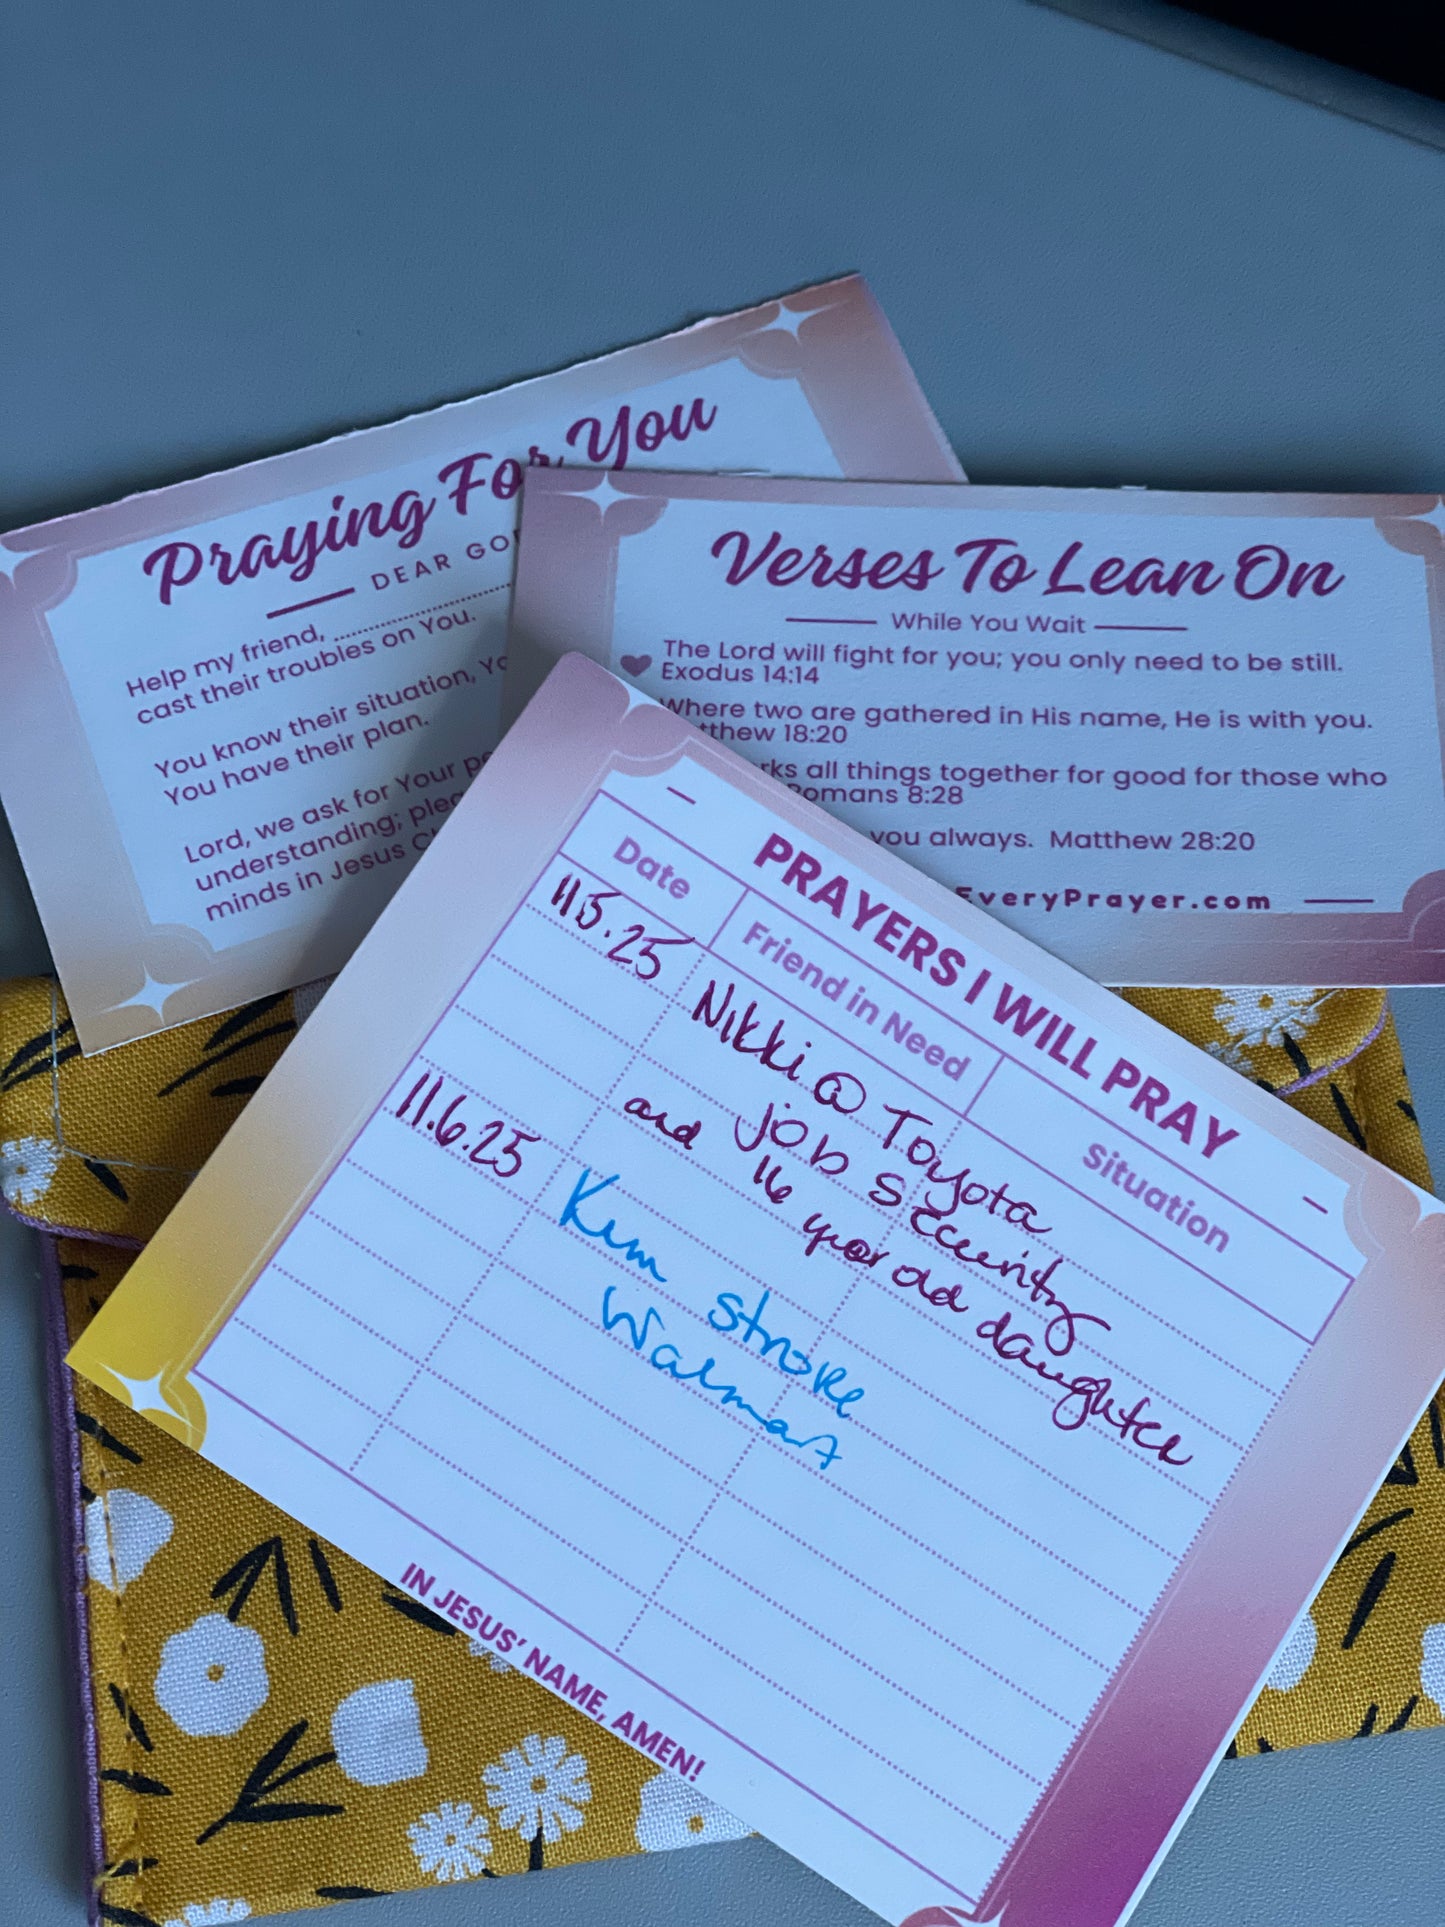 Praying For You
DEAR GO
Help my friend,
cast their troubles on You.
You know their situation,
You have their plan.
Lord, we ask for Your
understanding;
minds in Jesus
Verses To Lean On
While You Wait
The Lord will fight for you; you only need to be still.
Exodus 14:14
Where two are gathered in His name, He is with you.
tthew 18:20
rks all things together for good for those who
Romans 8:28
you always. Matthew 28:20
EveryPrayer.com
PRAYERS I WILL PRAY
Date Friend in Need Situation
11.5.25 Nikki @ Toyota
job security
and 16 year old daughter
11.6.25 Kim stroke
Walmart
IN JESUS' NAME, AMEN!